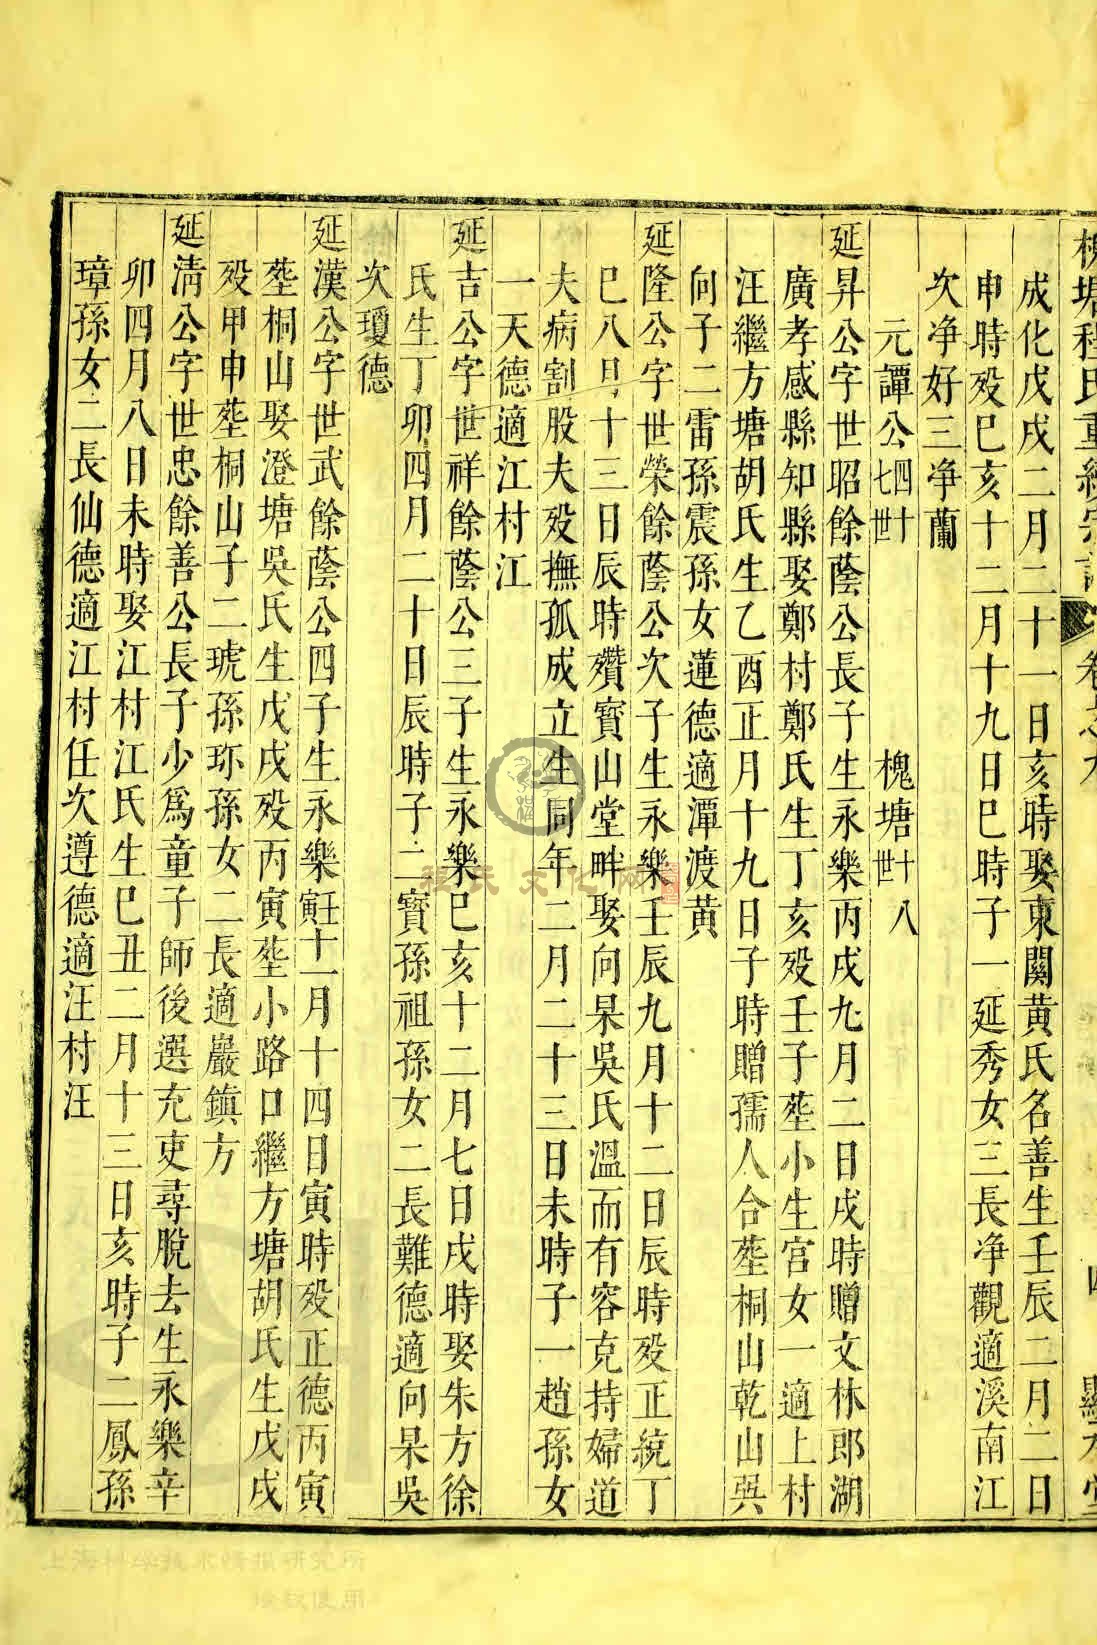 槐塘程氏重續宗譜 卷之九 四 顯承堂
成化戊戌二月二十一日亥時娶東關黃氏名善生壬辰二月二日
申時歿巳亥十二月十九日巳時子一延秀女三長净觀適溪南江
次净好三净蘭
元譚公四十七世 槐塘十八世
延昇公字世昭餘蔭公長子生永樂丙戌九月二日戌時贈文林郎湖
廣孝感縣知縣娶鄭村鄭氏生丁亥歿壬子塟小生宫女一適上村
汪繼方塘胡氏生乙酉正月十九日子時贈孺人合塟桐山乾山巽
向子二雷孫震孫女蓮德適潭渡黃
延隆公字世榮餘蔭公次子生永樂壬辰九月十二日辰時歿正統丁
巳八月十三日辰時殯寳山堂畔娶向杲吳氏溫而有容克持婦道
夫病割股夫歿撫孤成立生同年二月二十三日未時子一趙孫女
一天德適江村江
延吉公字世祥餘蔭公三子生永樂巳亥十二月七日戌時娶朱方徐
氏生丁卯四月二十日辰時子二寳孫祖孫女二長難德適向杲吳
次瓊德
延漢公字世武餘蔭公四子生永樂壬寅十一月十四日寅時歿正德丙寅
塟桐山娶澄塘吳氏生戊戌歿丙寅塟小路口繼方塘胡氏生戊戌
歿甲申塟桐山子二琥孫珎孫女二長適巖鎮方
延清公字世忠餘善公長子少爲童子師後選充吏尋脫去生永樂辛
卯四月八日未時娶江村江氏生巳丑二月十三日亥時子二鳳孫
璋孫女二長仙德適江村任次遵德適汪村汪
程氏文化网
上海科学技术情报研究所